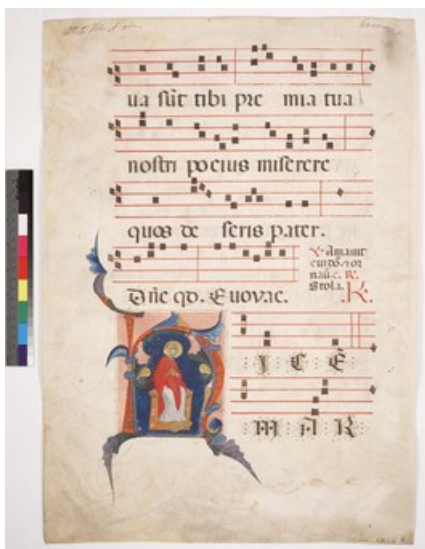 ua sūt tibi pre mia tua
nostri pocius miserere
quos de seris pater.
Dn̄e qd. Euovae.
V. Amauit
eū dō. ⁊ or
nau. e. R.
Stola. R.
I C Ē
M A R